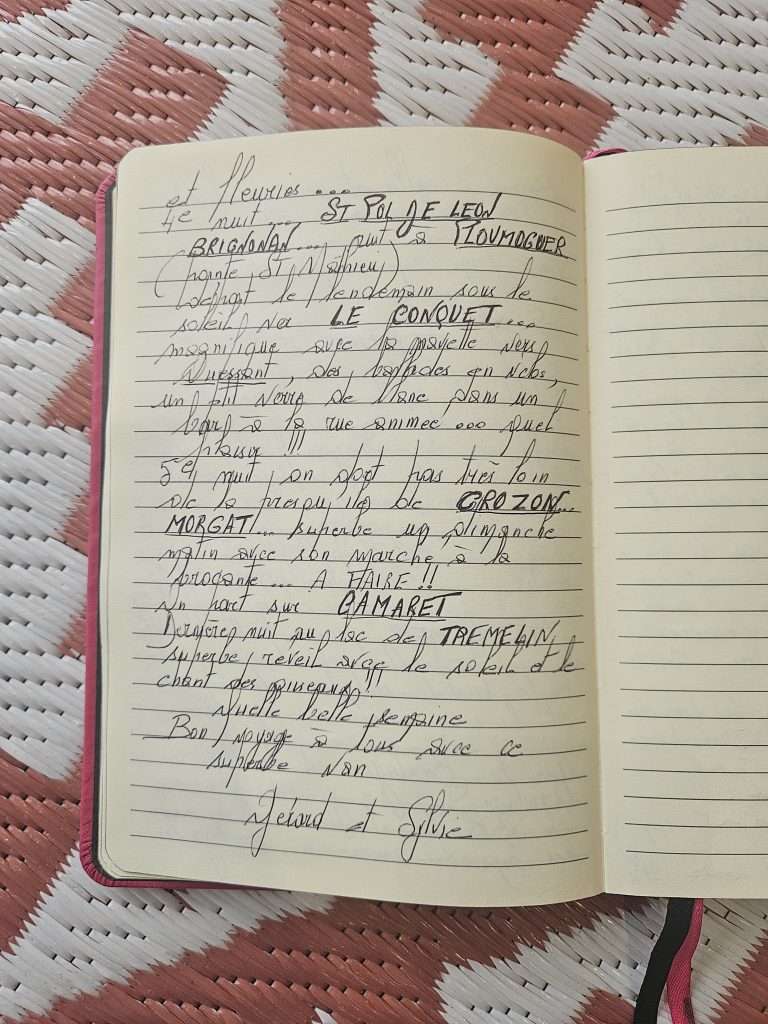 et fleuries ...
4e nuit ... ST POL DE LEON
BRIGNONAN ... nuit à PLOUMOGUER
(pointe ST Mathieu)
départ le lendemain sous le
soleil ver LE CONQUET ...
magnifique avec la navette vers
Ouessant, des ballades en vélos,
un ptit verre de blanc dans un
bar à la rue animée ... quel
plaisir !!!
5e nuit, on dort pas très loin
de la presqu'île de CROZON...
MORGAT... superbe un dimanche
matin avec son marché à la
brocante ... A FAIRE !!
on part sur CAMARET
Dernière nuit au lac de TREMELIN,
superbe, reveil avec le soleil et le
chant des oiseaux !!
Quelle belle semaine
Bon voyage à tous avec ce
superbe van
Gérard et Sylvie